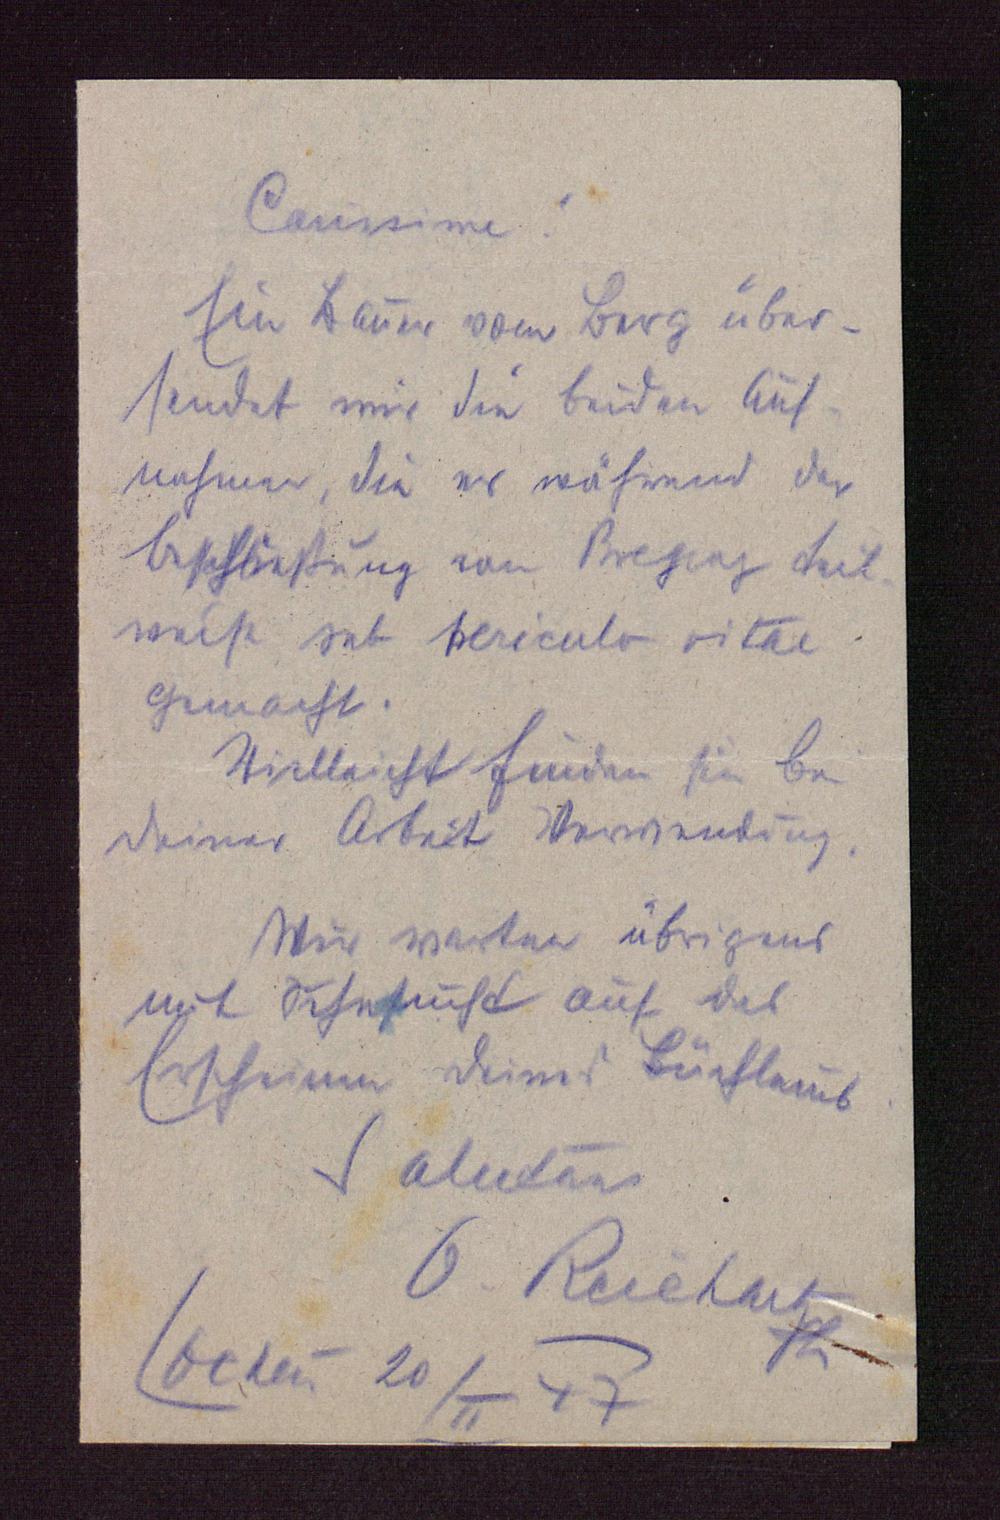 Carissime!
Ein Bauer vom Berg über-
sendet mir die beiden Auf-
nahmen, die er während der
Beschießung von Bregenz teil-
weise sub periculo vitae
gemacht.
Vielleicht finden sie bei
deiner Arbeit Verwendung.
Wir warten übrigens
mit Sehnsucht auf das
Erscheinen deines Büchleins
Salutans
G. Reichart
Lochau 20/II 47